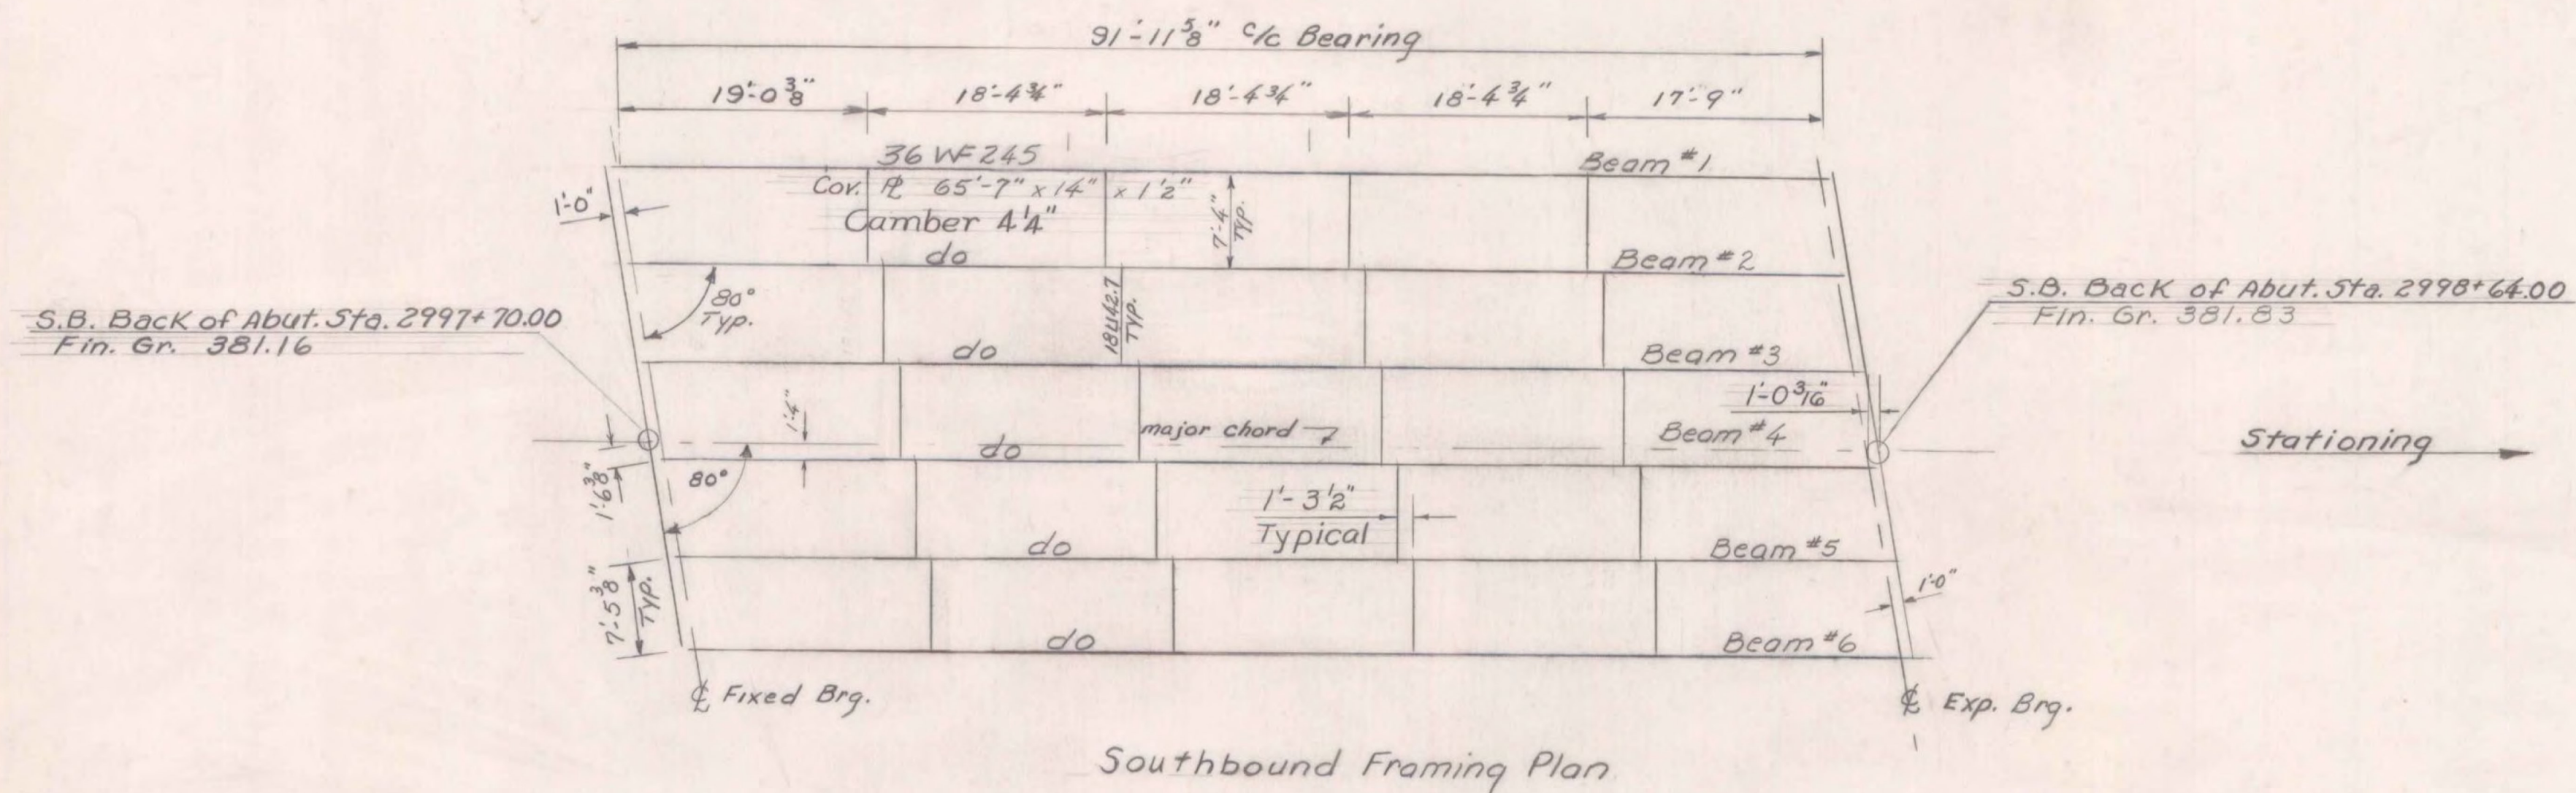 91'-11 5/8" c/c Bearing
19'-0 3/8"
18'-4 3/4"
18'-4 3/4"
18'-4 3/4"
17'-9"
36 WF 245
Beam #1
Cov. PL 65'-7" x 14" x 1 1/2"
1'-0"
Camber 4 1/4"
7'-4"
Typ.
do
Beam #2
80°
Typ.
18⊔42.7
TYP.
S.B. Back of Abut. Sta. 2997+70.00
Fin. Gr. 381.16
S.B. Back of Abut. Sta. 2998+64.00
Fin. Gr. 381.83
do
Beam #3
1'-0 3/16"
1'-4"
major chord
do
Beam #4
Stationing
1'-6 3/8"
80°
1'-3 1/2"
Typical
do
Beam #5
7'-5 3/8"
TYP.
1'-0"
do
Beam #6
℄ Fixed Brg.
℄ Exp. Brg.
Southbound Framing Plan